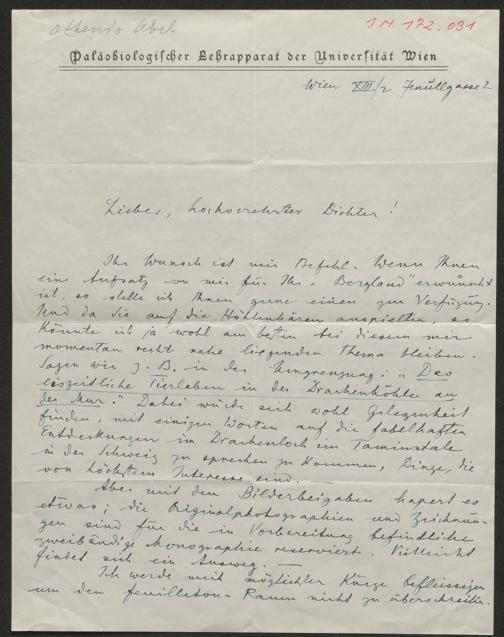 Othenio Abel
I.N. 172.031
Paläobiologischer Lehrapparat der Universität Wien
Wien XIII/2 Jenullgasse 2
Lieber, hochverehrter Dichter!
Ihr Wunsch ist mir Befehl. Wenn Ihnen
ein Aufsatz von mir für Ihr „Bergland" erwünscht
ist, so stelle ich Ihnen gerne einen zur Verfügung.
Und da Sie auf die Höhlenbären anspielten, so
könnte ich ja wohl am besten bei diesem mir
momentan recht nahe liegenden Thema bleiben.
Sagen wir z. B. in der Umgrenzung: „Das
eiszeitliche Tierleben in der Drachenhöhle an
der Mur." Dabei würde sich wohl Gelegenheit
finden, mit einigen Worten auf die fabelhaften
Entdeckungen im Drachenloch im Taminatale
in der Schweiz zu sprechen zu kommen, Dinge, die
von höchstem Interesse sind. —
Aber mit den Bilderbeigaben hapert es
etwas; die Originalphotographien und Zeichnun-
gen sind für die in Vorbereitung befindliche
zweibändige Monographie reserviert. Vielleicht
findet sich ein Ausweg. —
Ich werde mich möglichster Kürze befleissigen
um den Feuilleton-Raum nicht zu überschreiten.